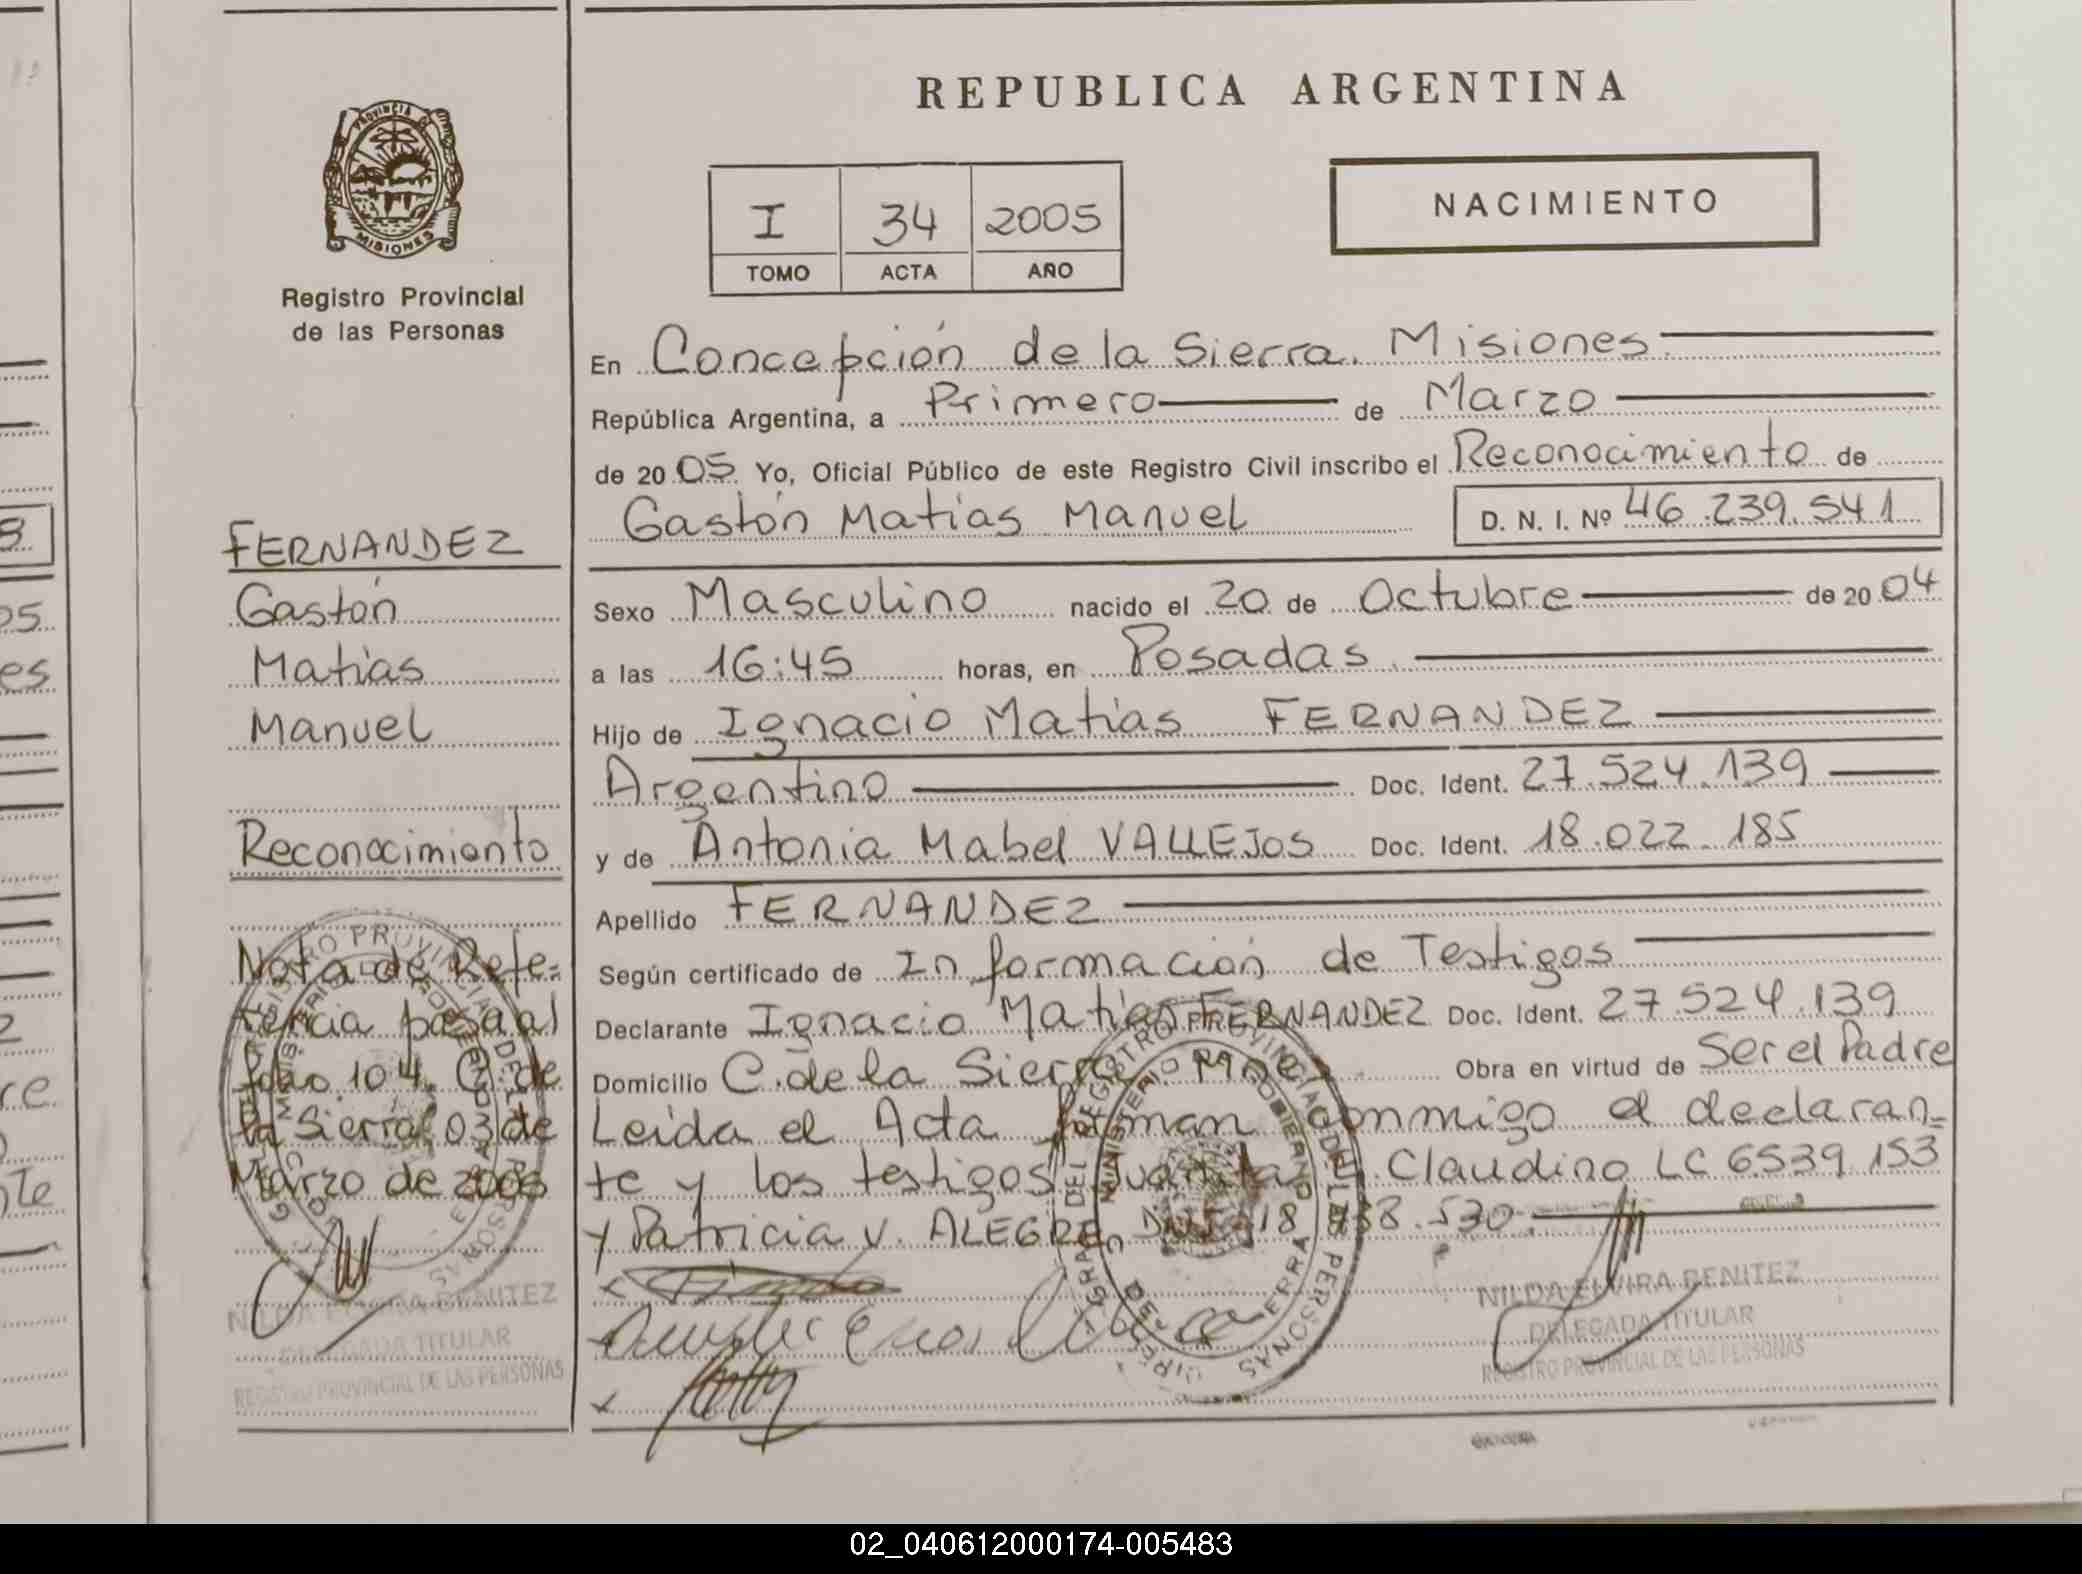 REPUBLICA ARGENTINA
PROVINCIA DE
MISIONES
Registro Provincial
de las Personas
I 34 2005
TOMO ACTA AÑO
NACIMIENTO
FERNANDEZ
Gastón
Matías
Manuel
Reconocimiento
Nota de Refe=
rencia pasa al
folio 104. C. de
la Sierra 03 de
Marzo de
NILDA ELVIRA BENITEZ
DELEGADA TITULAR
REGISTRO PROVINCIAL DE LAS PERSONAS
En Concepción de la Sierra. Misiones
República Argentina, a Primero de Marzo
de 2005 Yo, Oficial Público de este Registro Civil inscribo el Reconocimiento de
Gastón Matías Manuel D. N. I. Nº 46.239.541
Sexo Masculino nacido el 20 de Octubre de 2004
a las 16:45 horas, en Posadas
Hijo de Ignacio Matías FERNANDEZ
Argentino Doc. Ident. 27.524.139
y de Antonia Mabel VALLEJOS Doc. Ident. 18.022.185
Apellido FERNANDEZ
Según certificado de Información de Testigos
Declarante Ignacio Matías FERNANDEZ Doc. Ident. 27.524.139
Domicilio C. de la Sierra Mnes Obra en virtud de Ser el Padre
Leída el Acta firman conmigo el declaran=
te y los testigos Claudino LC 6539.153
y Patricia V. ALEGRE DNI 18 .530.
NILDA ELVIRA BENITEZ
DELEGADA TITULAR
REGISTRO PROVINCIAL DE LAS PERSONAS
REGISTRO PROVINCIAL DE LAS PERSONAS
MINISTERIO DE GOBIERNO
02_040612000174-005483